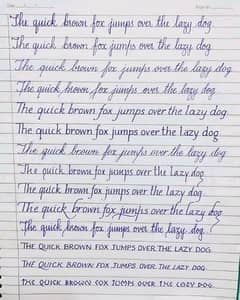 The quick brown fox jumps over the lazy dog.
The quick brown fox jumps over the lazy dog.
The quick brown fox jumps over the lazy dog.
The quick brown fox jumps over the lazy dog.
The quick brown fox jumps over the lazy dog.
The quick brown fox jumps over the lazy dog.
The quick brown fox jumps over the lazy dog.
The quick brown fox jumps over the lazy dog.
The quick brown fox jumps over the lazy dog.
The quick brown fox jumps over the lazy dog
The quick brown fox jumps over the lazy dog.
THE QUICK BROWN FOX JUMPS OVER THE LAZY DOG.
THE QUICK BROWN FOX JUMPS OVER THE LAZY DOG
THE QUICK BROWN FOX JUMPS OVER THE LAZY DOG.